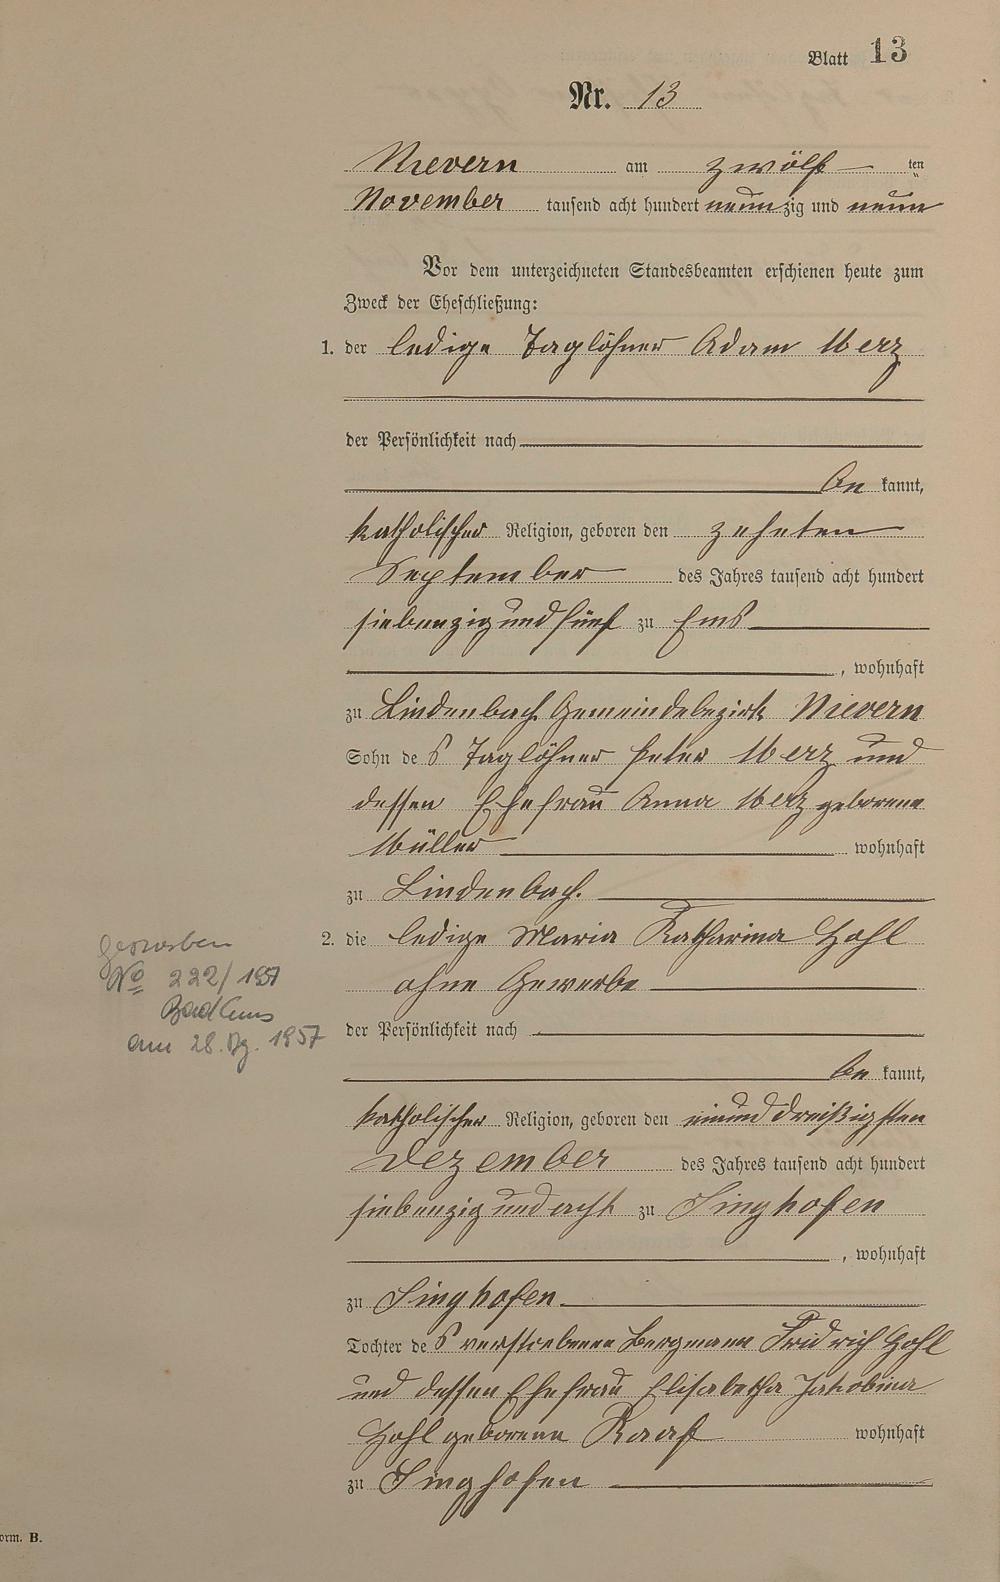 Blatt 13
Nr. 13
Nievern am zwölf ten
November tausend acht hundert neunzig und neun
Vor dem unterzeichneten Standesbeamten erschienen heute zum
Zweck der Eheschließung:
1. der ledige Taglöhner Adam Merz
der Persönlichkeit nach
be kannt,
katholischer Religion, geboren den zehnten
September des Jahres tausend acht hundert
siebenzig und fünf zu Ems
, wohnhaft
zu Lindenbach Gemeindebezirk Nievern
Sohn des Taglöhner Peter Merz und
dessen Ehefrau Anna Merz geborene
Müller wohnhaft
zu Lindenbach.
2. die ledige Maria Katharina Hohl
ohne Gewerbe
gestorben
No 222/1957
Bad Ems
am 28. Dz. 1957
der Persönlichkeit nach
be kannt,
katholischer Religion, geboren den einund dreißigsten
Dezember des Jahres tausend acht hundert
siebenzig und acht zu Singhofen
, wohnhaft
zu Singhofen
Tochter des verstorbenen Bergmann Fridrich Hohl
und dessen Ehefrau Elisabetha Jakobina
Hohl geborene Raaf wohnhaft
zu Singhofen
orm. B.